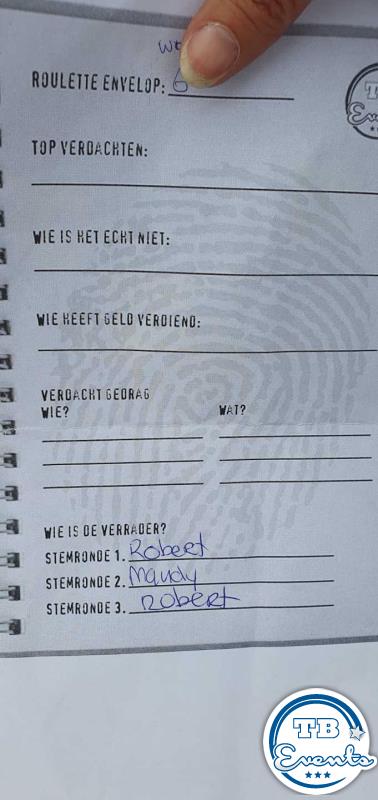 ROULETTE ENVELOP: 6
TOP VERDACHTEN:
WIE IS HET ECHT NIET:
WIE HEEFT GELD VERDIEND:
VERDACHT GEDRAG
WIE? WAT?
WIE IS DE VERRADER?
STEMRONDE 1. Robert
STEMRONDE 2. Mandy
STEMRONDE 3. Robert
TB
Events